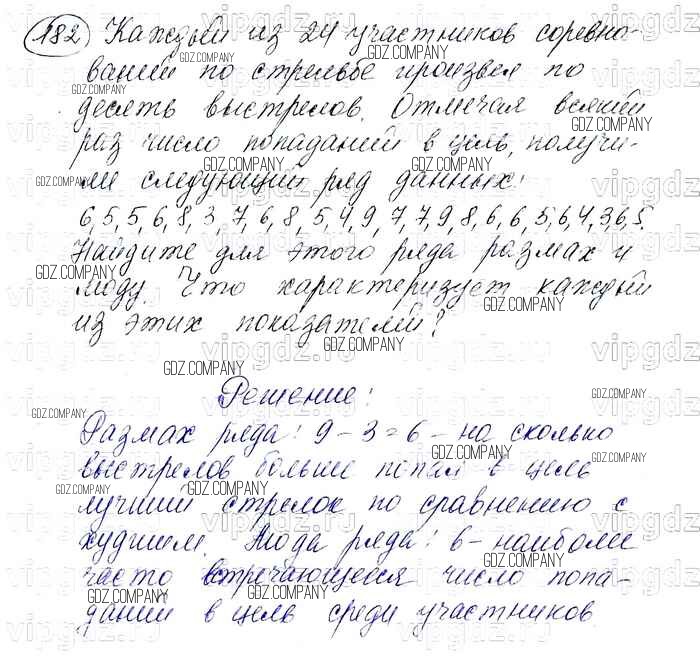 182 Каждый из 24 участников соревно-
ваний по стрельбе произвел по
десять выстрелов. Отмечая всякий
раз число попаданий в цель, получи-
ли следующий ряд данных:
6,5,5,6,8,3,7,6,8,5,4,9,7,7,9,8,6,6,5,6,4,3,6,5.
Найдите для этого ряда размах и
моду. Что характеризует каждый
из этих показателей?
Решение:
Размах ряда: 9-3=6 - на сколько
выстрелов больше попал в цель
лучший стрелок по сравнению с
худшим. Мода ряда: 6- наиболее
часто встречающееся число попа-
даний в цель среди участников.
GDZ.COMPANY
vipgdz.ru